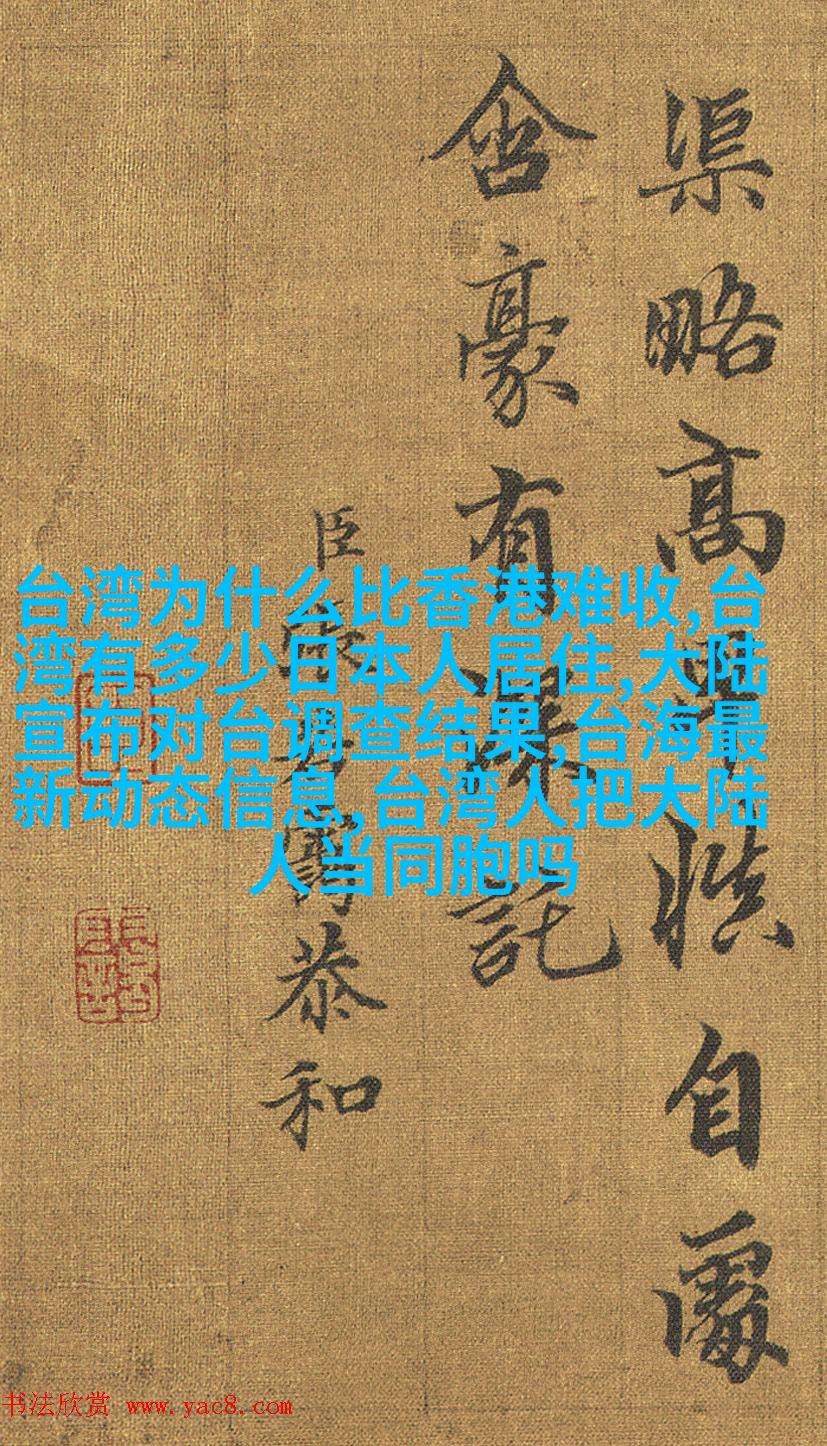 渠略高慎自處
含豪有託
臣恭和
台湾为什么比香港难收,台
湾有多少日本人居住,大陆
宣布对台调查结果,台海最
新动态信息,台湾人把大陆
人当同胞吗
书法欣赏 www.yac8.com